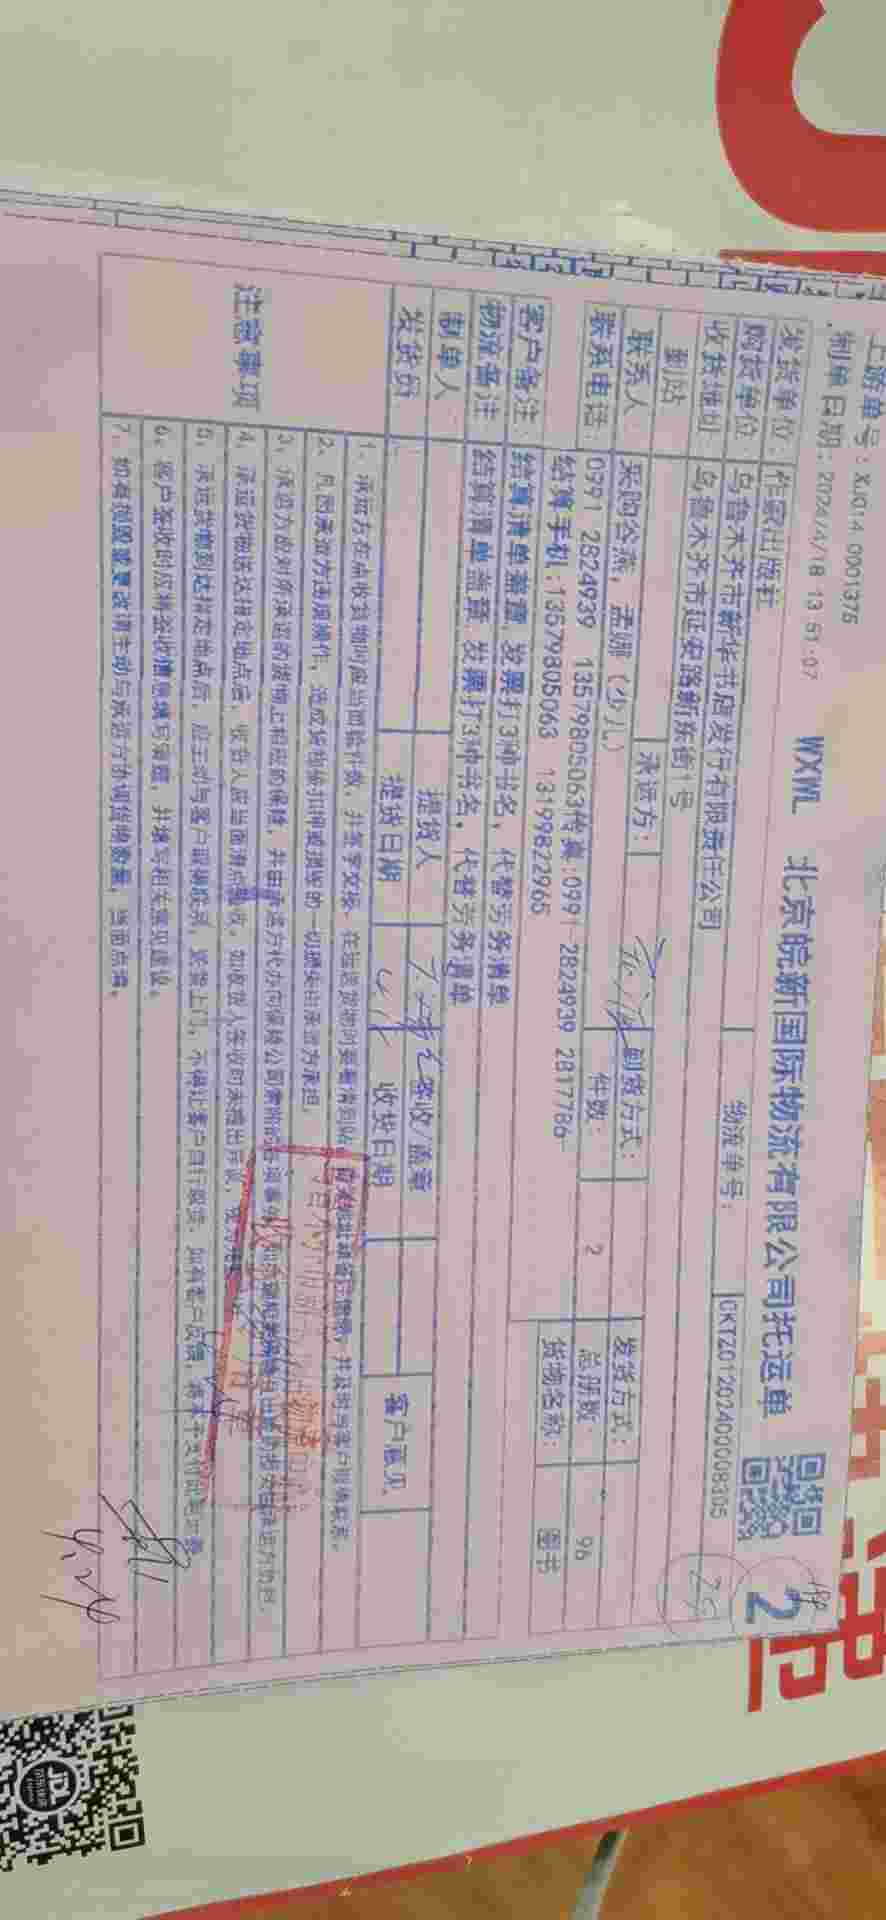 上游单号：XJ014 0001375
制单日期：2024/4/18 13 51:07
WXWL 北京皖新国际物流有限公司托运单
2
发货单位 作家出版社
物流单号： CKTZ01202400008305
购货单位 乌鲁木齐市新华书店发行有限责任公司
收货地址 乌鲁木齐市延安路新东街1号
25
到站 承运方： 到货方式： 发货方式：
联系人 采购谷燕，孟娜（少儿） 件数： 2 总册数： 96
联系电话： 0991 2824939 13579805063传真:0991 2824939 2817786 货物名称： 图书
结算手机:13579805063 13199822965
客户备注： 结算清单盖章，发票打3种书名，代替劳务清单
物流备注 结算清单盖章，发票打3种书名，代替劳务清单
制单人 提货人 签收/盖章 客户意见
发货员 提货日期 收货日期
注意事项
1、承运方在点收货物时应当面验件数，并签字交接。在运送货物时要看清到站
2、凡因承运方违规操作，造成货物被扣押或损坏的一切损失由承运方承担。
3、承运方应对所承运的货物上相应的保险，并由承运方代办向保险公司索赔的
4、承运货物送达指定地点后，收货人应当面清点验收，如收货人签收时未提出异议，
5、承运货物到达指定地点后，应主动与客户取得联系，送货上门，不得让客户自行提货，如有客户反馈，
6、客户签收时应将签收信息填写清楚，并填写相关意见建议。
7、如有损毁或更改请主动与承运方协调货物数量，当面点清。
4.24
JDL